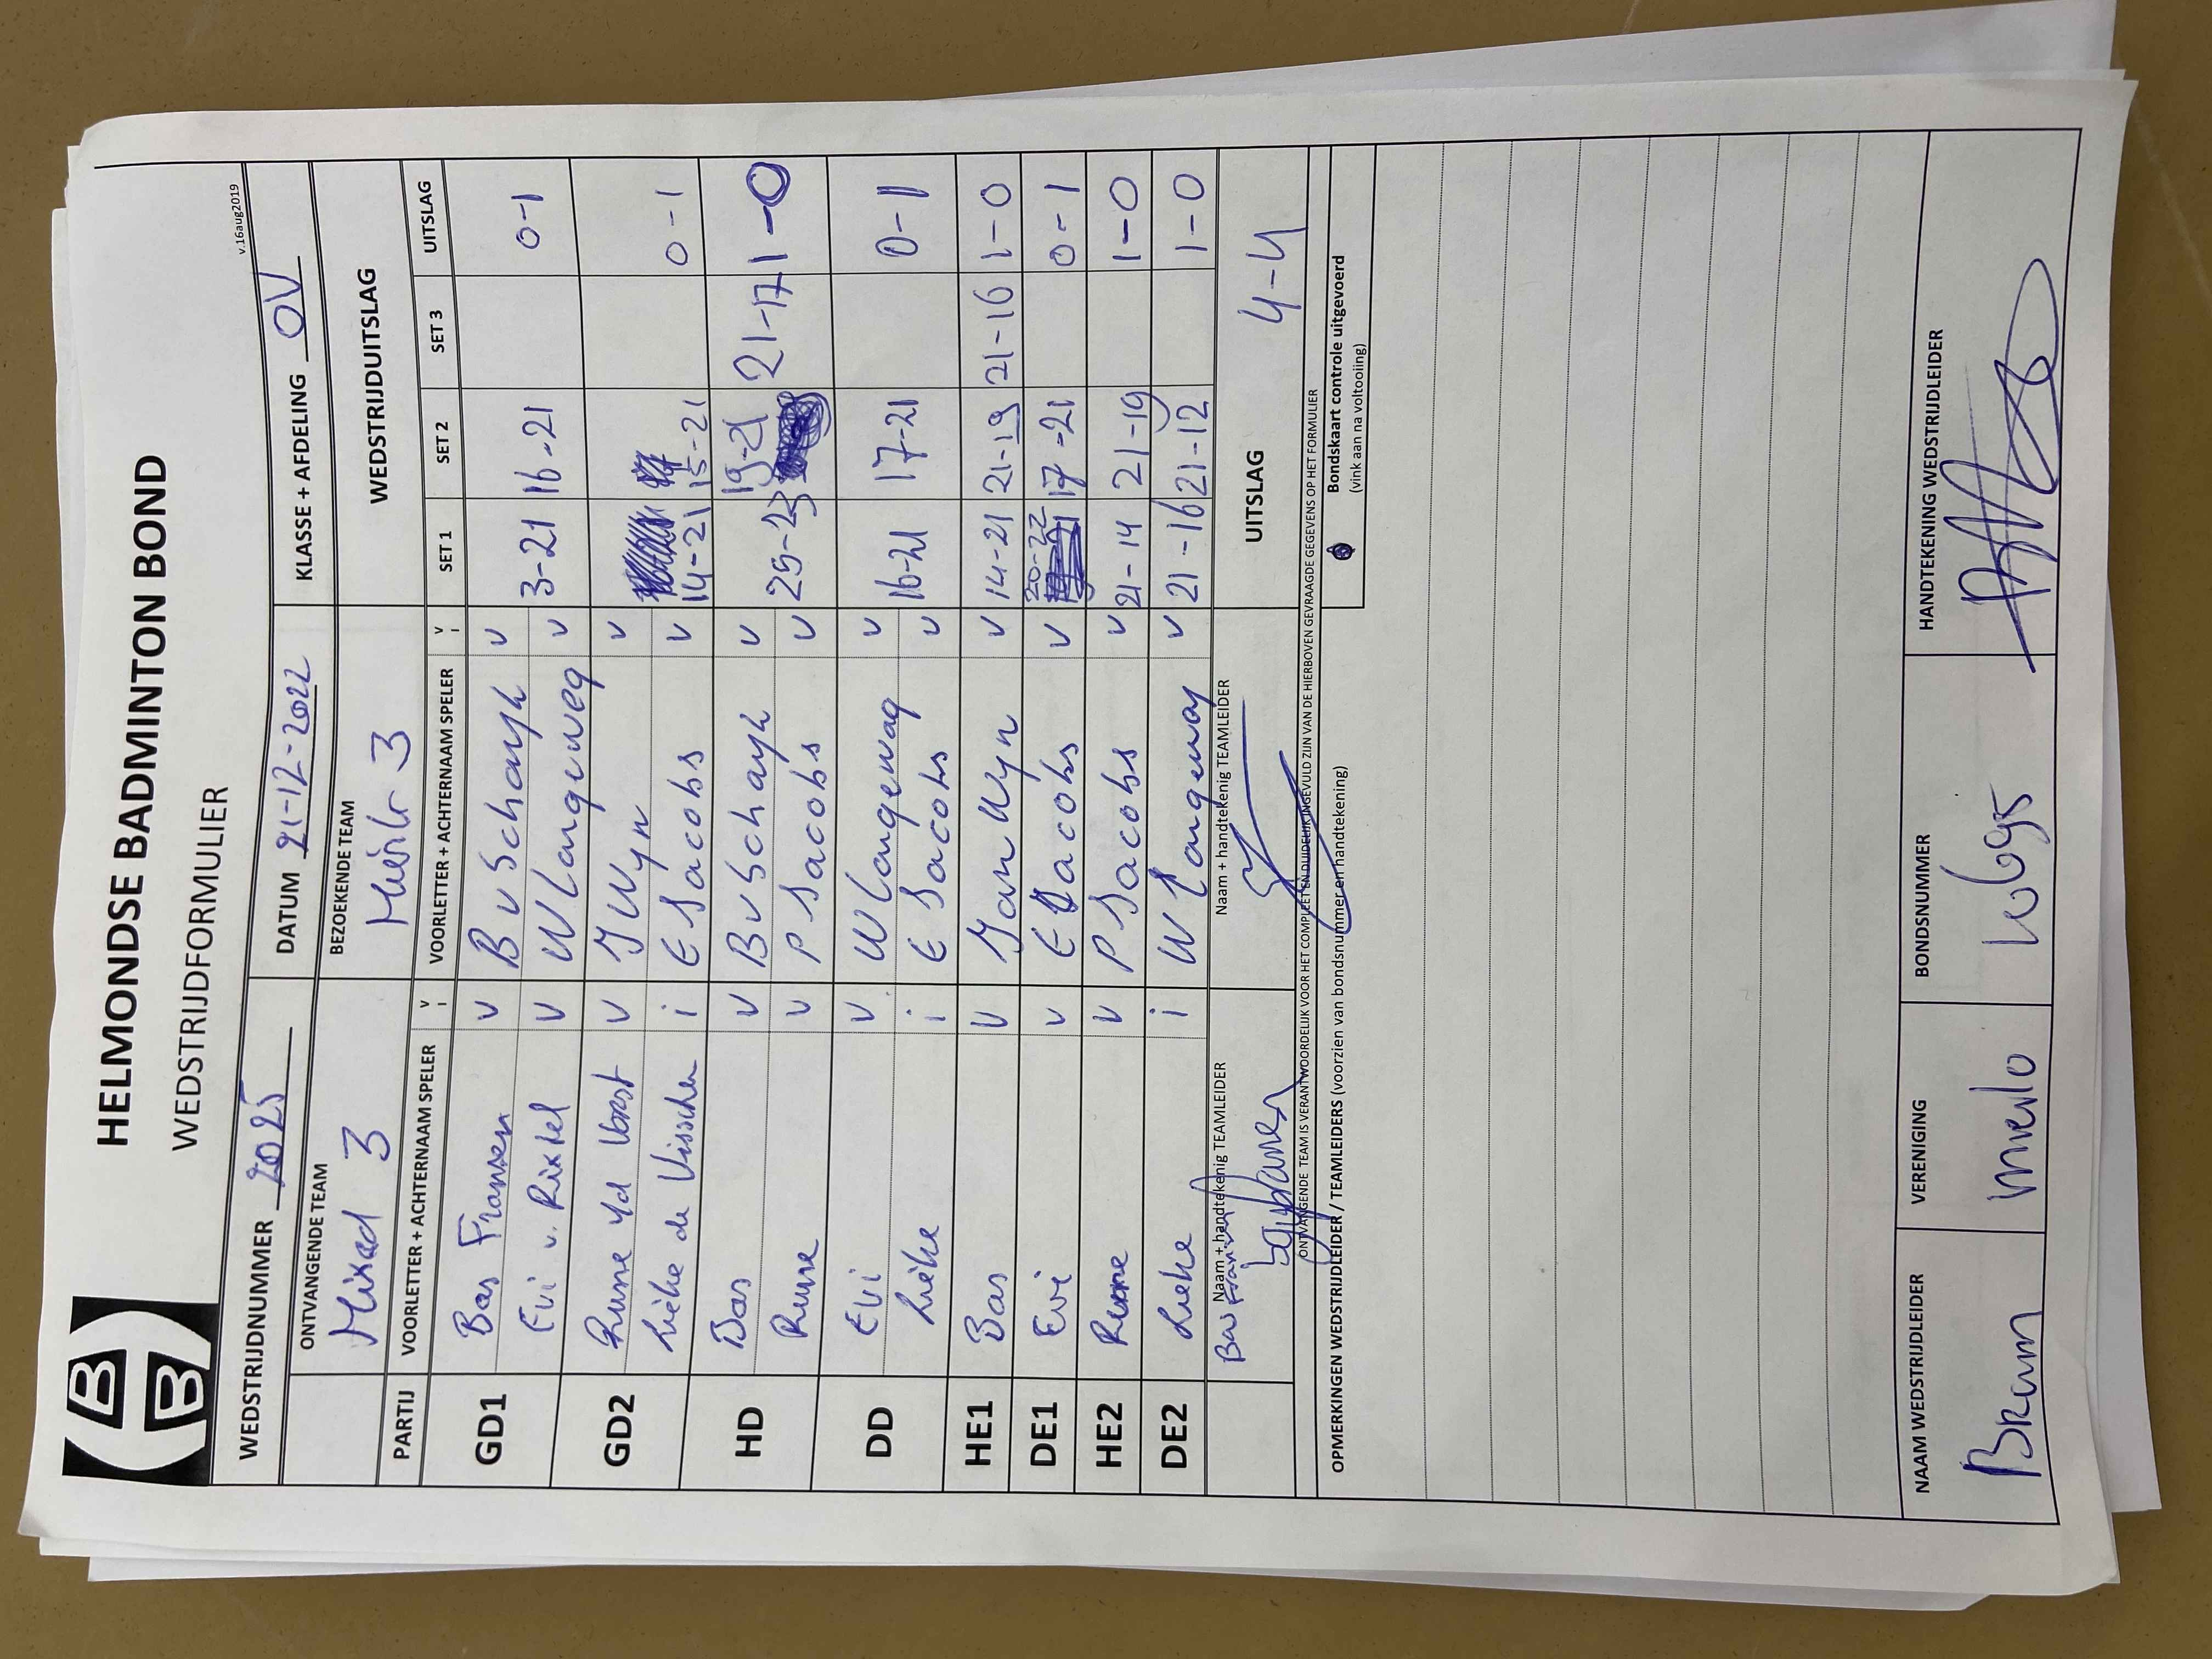 HELMONDSE BADMINTON BOND
WEDSTRIJDFORMULIER
v.16aug2019
WEDSTRIJDNUMMER 2025 DATUM 21-12-2022 KLASSE + AFDELING OV
ONTVANGENDE TEAM BEZOEKENDE TEAM WEDSTRIJDUITSLAG
Mixed 3 Mierlo 3
PARTIJ VOORLETTER + ACHTERNAAM SPELER V I VOORLETTER + ACHTERNAAM SPELER V I SET 1 SET 2 SET 3 UITSLAG
GD1 Bas Fransen v B v Schayk v
Evi v. Rixtel v W Langeweg v 3-21 16-21 0-1
GD2 Rune vd Vorst v J Wyn v
Lieke de Visscher i E Jacobs v 14-21 15-21 0-1
HD Bas v B v Schayk v 19-21 21-17 1-0
Rune v P Jacobs v 25-23
DD Evi v W Langeweg v 16-21 17-21 0-1
Lieke i E Jacobs v
HE1 Bas v Jan Wyn v 14-21 21-19 21-16 1-0
DE1 Evi v E Jacobs v 20-22 17-21 0-1
HE2 Rune v P Jacobs v 21-14 21-19 1-0
DE2 Lieke i W Langeweg v 21-16 21-12 1-0
Naam + handtekenig TEAMLEIDER Naam + handtekenig TEAMLEIDER UITSLAG 4-4
Bas Fransen
ONTVANGENDE TEAM IS VERANTWOORDELIJK VOOR HET COMPLEET EN DUIDELIJK INGEVULD ZIJN VAN DE HIERBOVEN GEVRAAGDE GEGEVENS OP HET FORMULIER
OPMERKINGEN WEDSTRIJDLEIDER / TEAMLEIDERS (voorzien van bondsnummer en handtekening)
Bondskaart controle uitgevoerd
(vink aan na voltooiing)
NAAM WEDSTRIJDLEIDER VERENIGING BONDSNUMMER HANDTEKENING WEDSTRIJDLEIDER
Bram mierlo